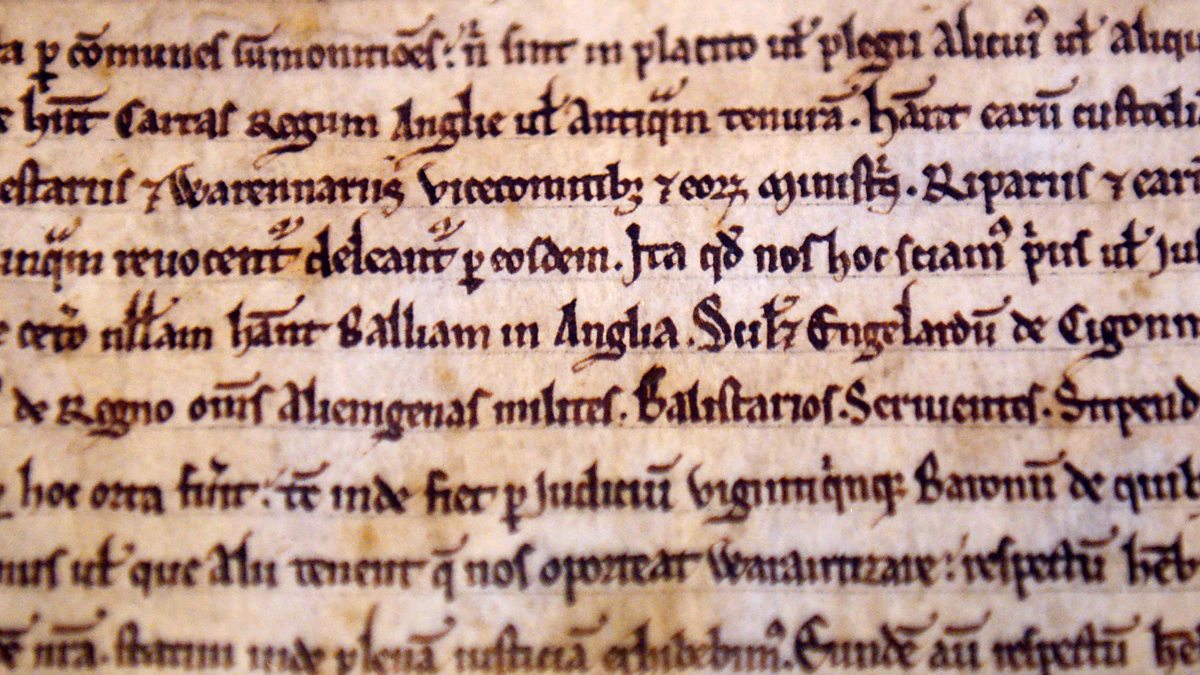 p̱ cōmunes sūmonitiōes : ñ sint in placito ul̄ plegii Alicui᷒ ul̄ Aliqu
hn̄t Cartas Regum Anglie ul̄ Antiqͣm tenurā . hān̄t earū custodi
estariis ⁊ Warennariis vicecomitibꝫ ⁊ eoꝝ ministr̄ . Ripariis ⁊ ear
unqͣm reuocentᷣ deleantᷣ ꝑ eosdem . Ita qđ nos hoc sciam᷒ p̓us ul̄ Ius
cet̓o nll̄am hān̄t Balliam in Anglia . Scilꝫ Engelardū de Cigonn
de Regno om̄s Alienigenas milites . Balistarios . Seruientes . Stipend
hoc orta fu̓int : tc̄ inde fiet ꝑ Judiciū vigintiq̓nqꝫ Baronū de quib
ul̄ que Alii tenent q̄ nos oporteat Warantizare : respectū hēb
nr̄a . statim inde plenā iusticiā exhibebim᷒ . Eundē aū respectū hē